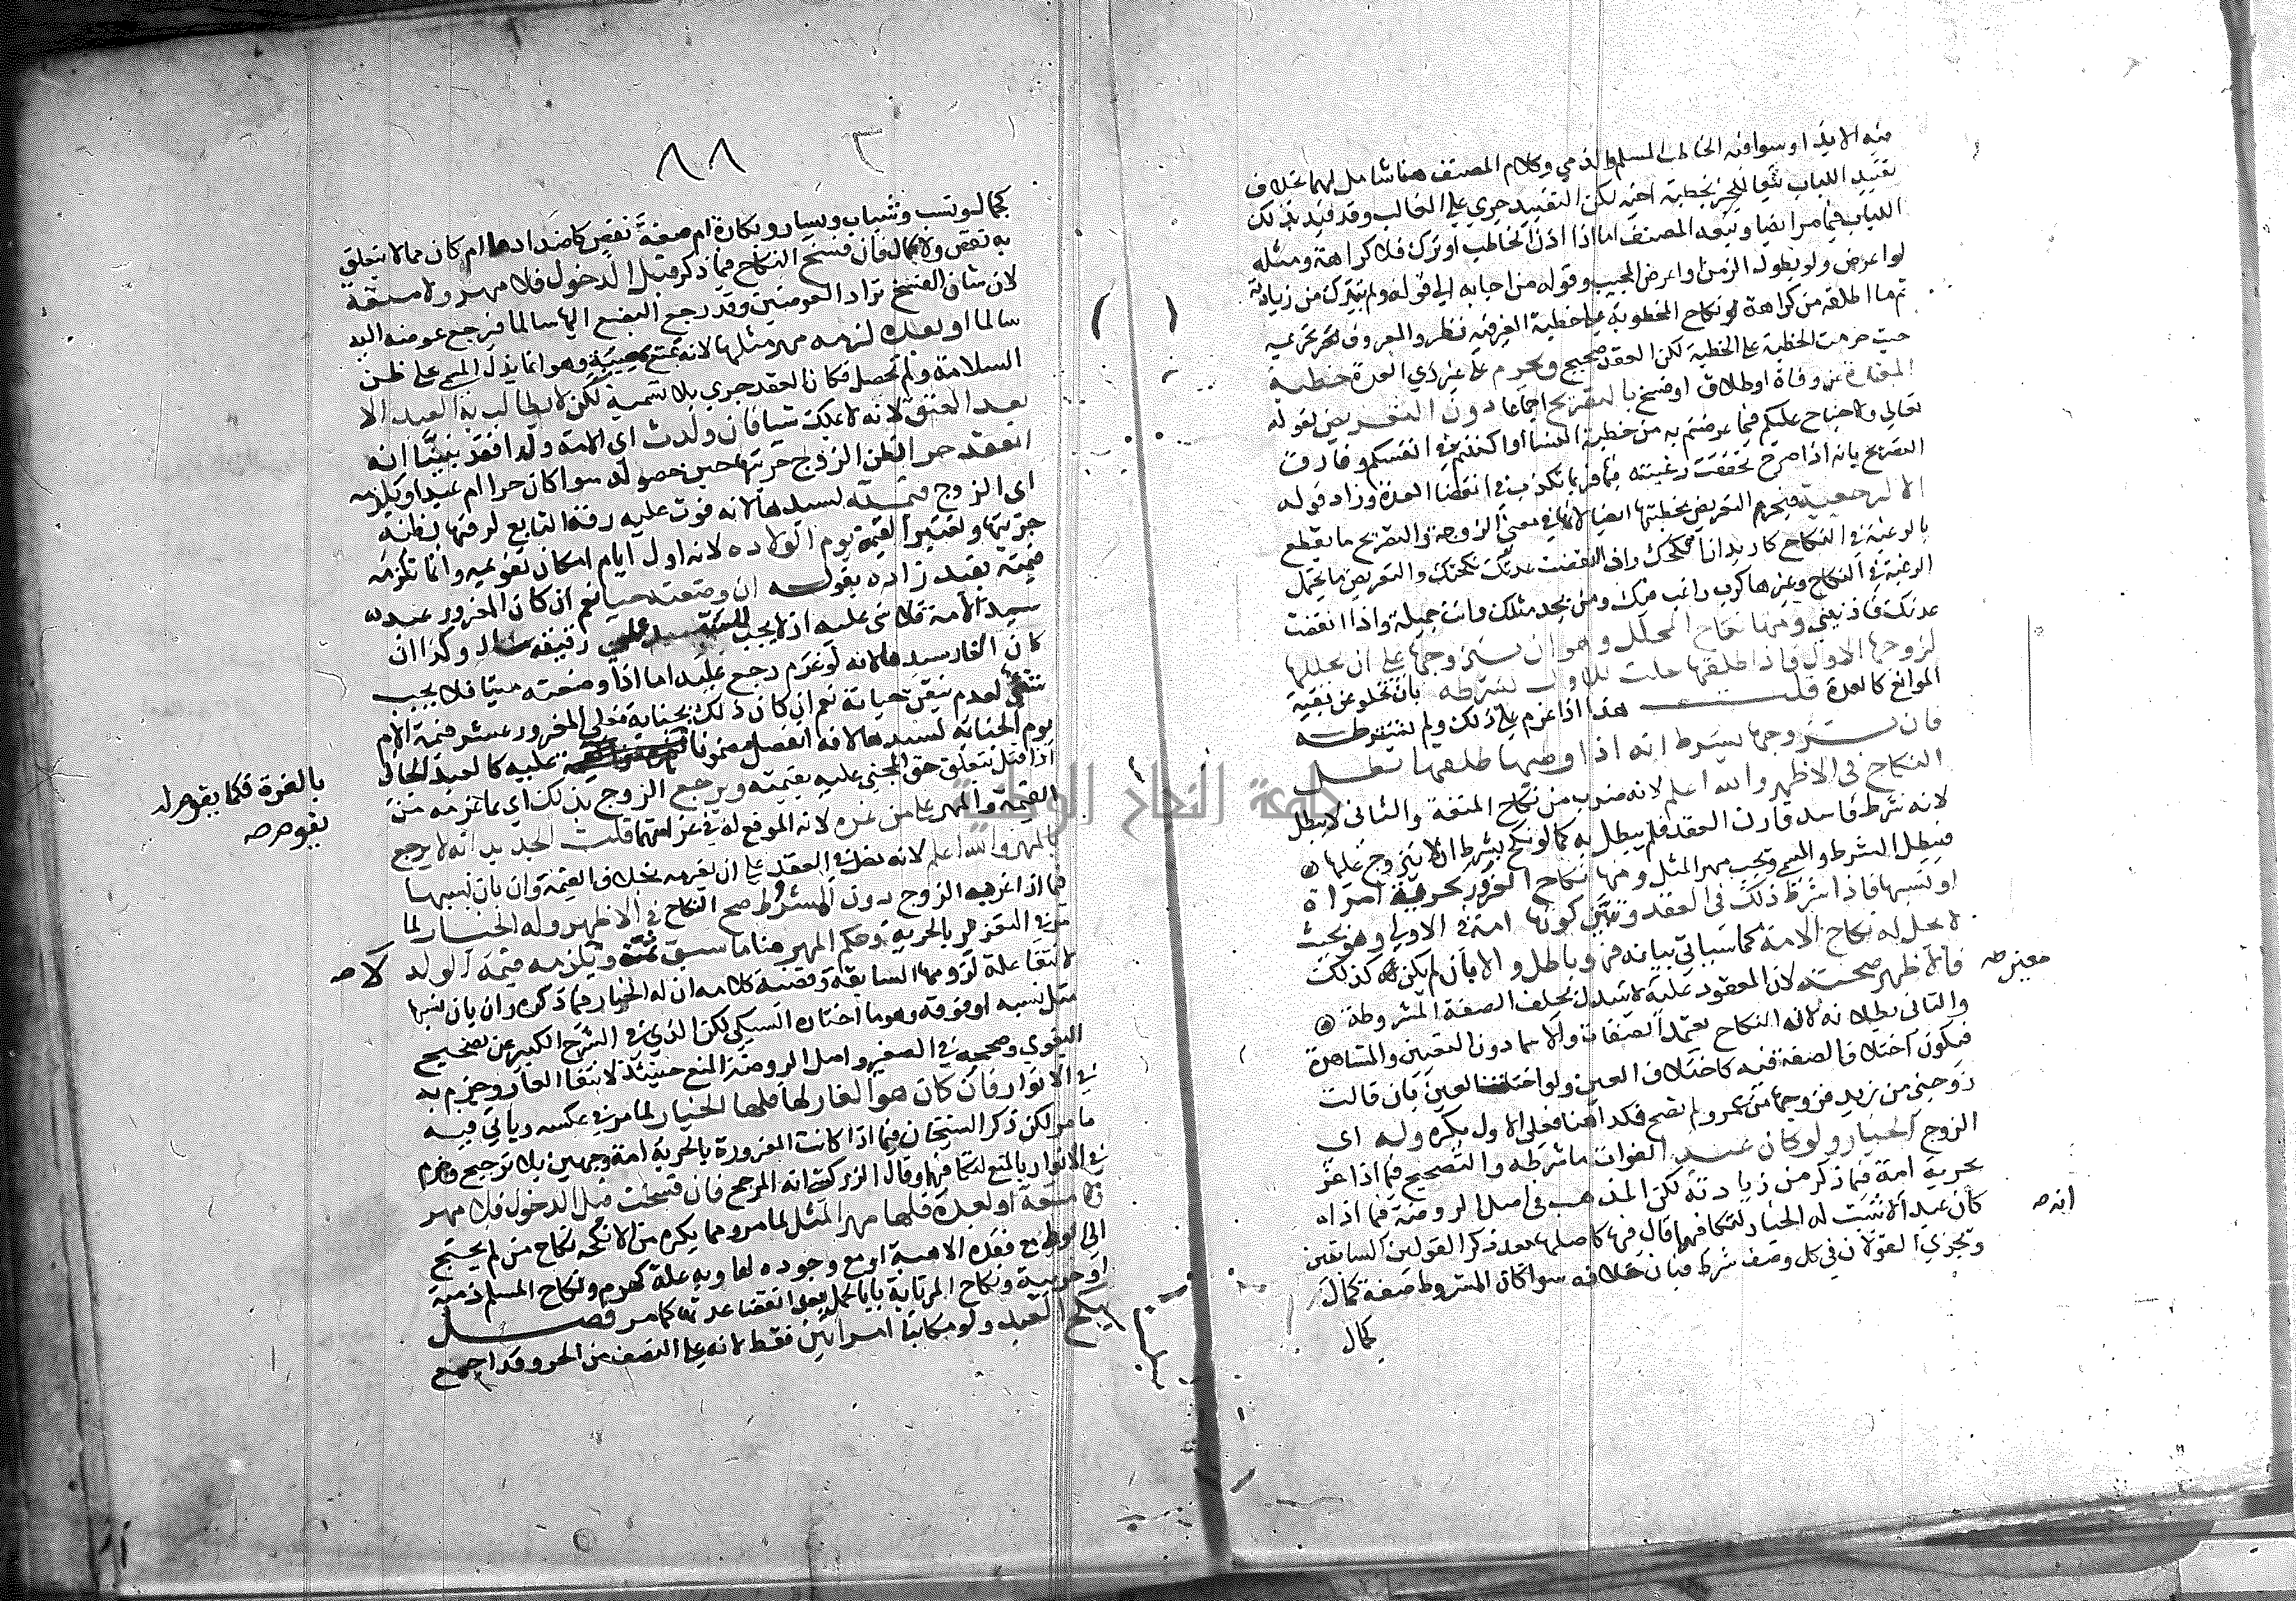 منه الايذا وسوا فيه الخاطب المسلم والذمي وكلام المصنف هنا شامل لهما بخلاف
تقييد اللباب تبعا للخبر بخطبة اخيه لكن التقييد جري علي الغالب وقد قيد بذلك
اللباب فيما مر ايضا وتبعه المصنف اما اذا اذن الخاطب او ترك فلا كراهة ومثله
لو اعرض ولو بطول الزمن او اعرض المجيب وقوله من اجابه الي قوله ولم يترك من زيادته
ثم ما اطلقه من كراهة نكاح المخطوبة علي خطبة الغير فيه نظر والمعروف تحريمه
حيث حرمت الخطبة علي الخطبة لكن العقد صحيح ويحرم علي غير ذي العدة خطبة
المعتدة عن وفاة او طلاق او فسخ بالتصريح اجماعا دون التعريض لقوله
تعالي ولا جناح عليكم فيما عرضتم به من خطبة النسا او اكننتم في انفسكم وفارق
التصريح بانه اذا صرح تحققت رغبته فيها فربما تكذب في انقضا العدة وزاد قوله
الا لرجعية فيحرم التعريض بخطبتها ايضا لانها في معني الزوجة والتصريح ما يقطع
بالرغبة في النكاح كاريد ان انكحك واذا انقضت عدتك نكحتك والتعريض ما يحتمل
الرغبة في النكاح وغيرها كرب راغب فيك ومن يجد مثلك وانت جميلة واذا انقضت
عدتك فاذنيني ومنها نكاح المحلل وهو ان يتزوجها علي ان يحللها
لزوجها الاول فاذا طلقها حلت للاول بشرطه بان تخلو عن بقية
الموانع كالعدة قلت هذا اذا عزم علي ذلك ولم يشترطه
فان تزوجها بشرط انه اذا وطيها طلقها بطل
النكاح في الاظهر والله اعلم لانه ضرب من نكاح المتعة والثاني لا يبطل
لانه شرط فاسد قارن العقد فلم يبطل به كما لو نكح بشرط ان لا يتزوج عليها
فيبطل الشرط والمسمي ويجب مهر المثل ومنها نكاح المغرور بحرية امراة
او نسبها فاذا شرط ذلك في العقد وتبين كونها امة في الاولي وهو بحيث
لا يحل له نكاح الامة كما سياتي بيانه فهو باطل والا بان لم يكن كذلك
فالاظهر صحته لان المعقود عليه لا يتبدل بخلف الصفة المشروطة
معين صح
والثاني بطلانه لان النكاح يعتمد الصفات والاسما دون التعيين والمشاهدة
فيكون اختلاف الصفة فيه كاختلاف العين ولو اختلف العين بان قالت
زوجني من زيد فزوجها من عمرو لم يصح فكذا هنا فعلي الاول يكره وله اي
الزوج الخيار ولو كان عبدا لفوات ما شرطه والتصحيح فيما اذا غر
بحرية امة فيما ذكر من زيادته لكن المذهب في اصل الروضة فيما اذا
كان عبدا لا يثبت له الخيار لتكافيهما قال فيها كاصلها بعد ذكر القولين السابقين
انه صح
ويجري القولان في كل وصف شرط فبان خلافه سوا كان المشروط صفة كمال
كمال
٨٨
كجمال ونسب وشباب ويسار وبكارة ام صفة نقص كاضدادها ام كان مما لا يتعلق
به نقص ولا كمال فان فسخ النكاح فيما ذكر قبل الدخول فلا مهر ولا متعة
لان شان الفسخ تراد العوضين وقد رجع البضع اليها سالما فيرجع عوضه اليه
سالما او بعده لزمه مهر مثلها لانه تمتع بمعيبة وهو انما بذل المسمي علي ظن
السلامة ولم تحصل فكان العقد جري بلا تسمية لكن لا يطالب به العبد الا
بعد العتق لانه لا يملك شيا فان ولدت اي الامة ولدا فقد تبينا انه
انعقد حرا لظن الزوج حريتها حين حصوله سوا كان حرا ام عبدا ويلزمه
اي الزوج قيمته لسيدها لانه فوت عليه رقه التابع لرقها بظنه
حريتها وتعتبر القيمة يوم الولادة لانه اول ايام امكان تقويمه وانما تلزمه
قيمته بقيد زاده بقوله ان وضعته حيا نعم ان كان المغرور عبد
سيد الامة فلا شي عليه اذ لا يجب للسيد علي رقيقه مال وكذا ان
كان الغار سيدها لانه لو غرم رجع عليه اما اذا وضعته ميتا فلا يجب
شي لعدم تيقن حياته نعم ان كان ذلك بجناية فعلي المغرور عشر قيمة الام
يوم الجناية لسيدها لانه انفصل مضمونا عليه كالعبد الجاني
بالغرة فكما يقوم له يقوم صح
اذا قتل يتعلق حق المجني عليه بقيمته ويرجع الزوج بذلك اي بما غرمه من
القيمة والمهر علي من غره لانه الموقع له في غرامتها قلت الجديد انه لا يرجع
بالمهر والله اعلم لانه دخل في العقد علي ان يغرمه بخلاف القيمة وان بان نسبها
فيما اذا غر به الزوج دون المشروط صح النكاح في الاظهر وله الخيار لما
مر في التغرير بالحرية وحكم المهر هنا ما سبق ثمة ويلزمه قيمة الولد
كلا صح
لانتفا علة لزومها السابقة وقضية كلامه ان له الخيار فيما ذكره وان بان نسبها
مثل نسبه او فوقه وهو ما اختاره السبكي لكن الذي في الشرح الكبير عن تصحيح
البغوي وصححه في الصغير واصل الروضة المنع حينئذ لانتفا العار وجزم به
في الانوار فان كان هو الغار لها فلها الخيار لما مر في عكسه وياتي فيه
ما مر لكن ذكر الشيخان فيما اذا كانت المغرورة بالحرية امة وجهين بلا ترجيح وجزم
في الانوار بالمنع لتكافيهما وقال الزركشي انه المرجح فان فسخت قبل الدخول فلا مهر
ولا متعة او بعده فلها مهر المثل لما مر ومما يكره من الانكحة نكاح من لم يحتج
الي الوطي مع فقده الاهبة او مع وجودها وبه علة كهرم ونكاح المسلم ذمية
او حربية ونكاح المرتابة بالحمل بعد انقضا عدتها كما مر فصل
ينكح العبد ولو مكاتبا امراتين فقط لانه علي النصف من الحر وقد اجمع
جامعة النجاح الوطنية